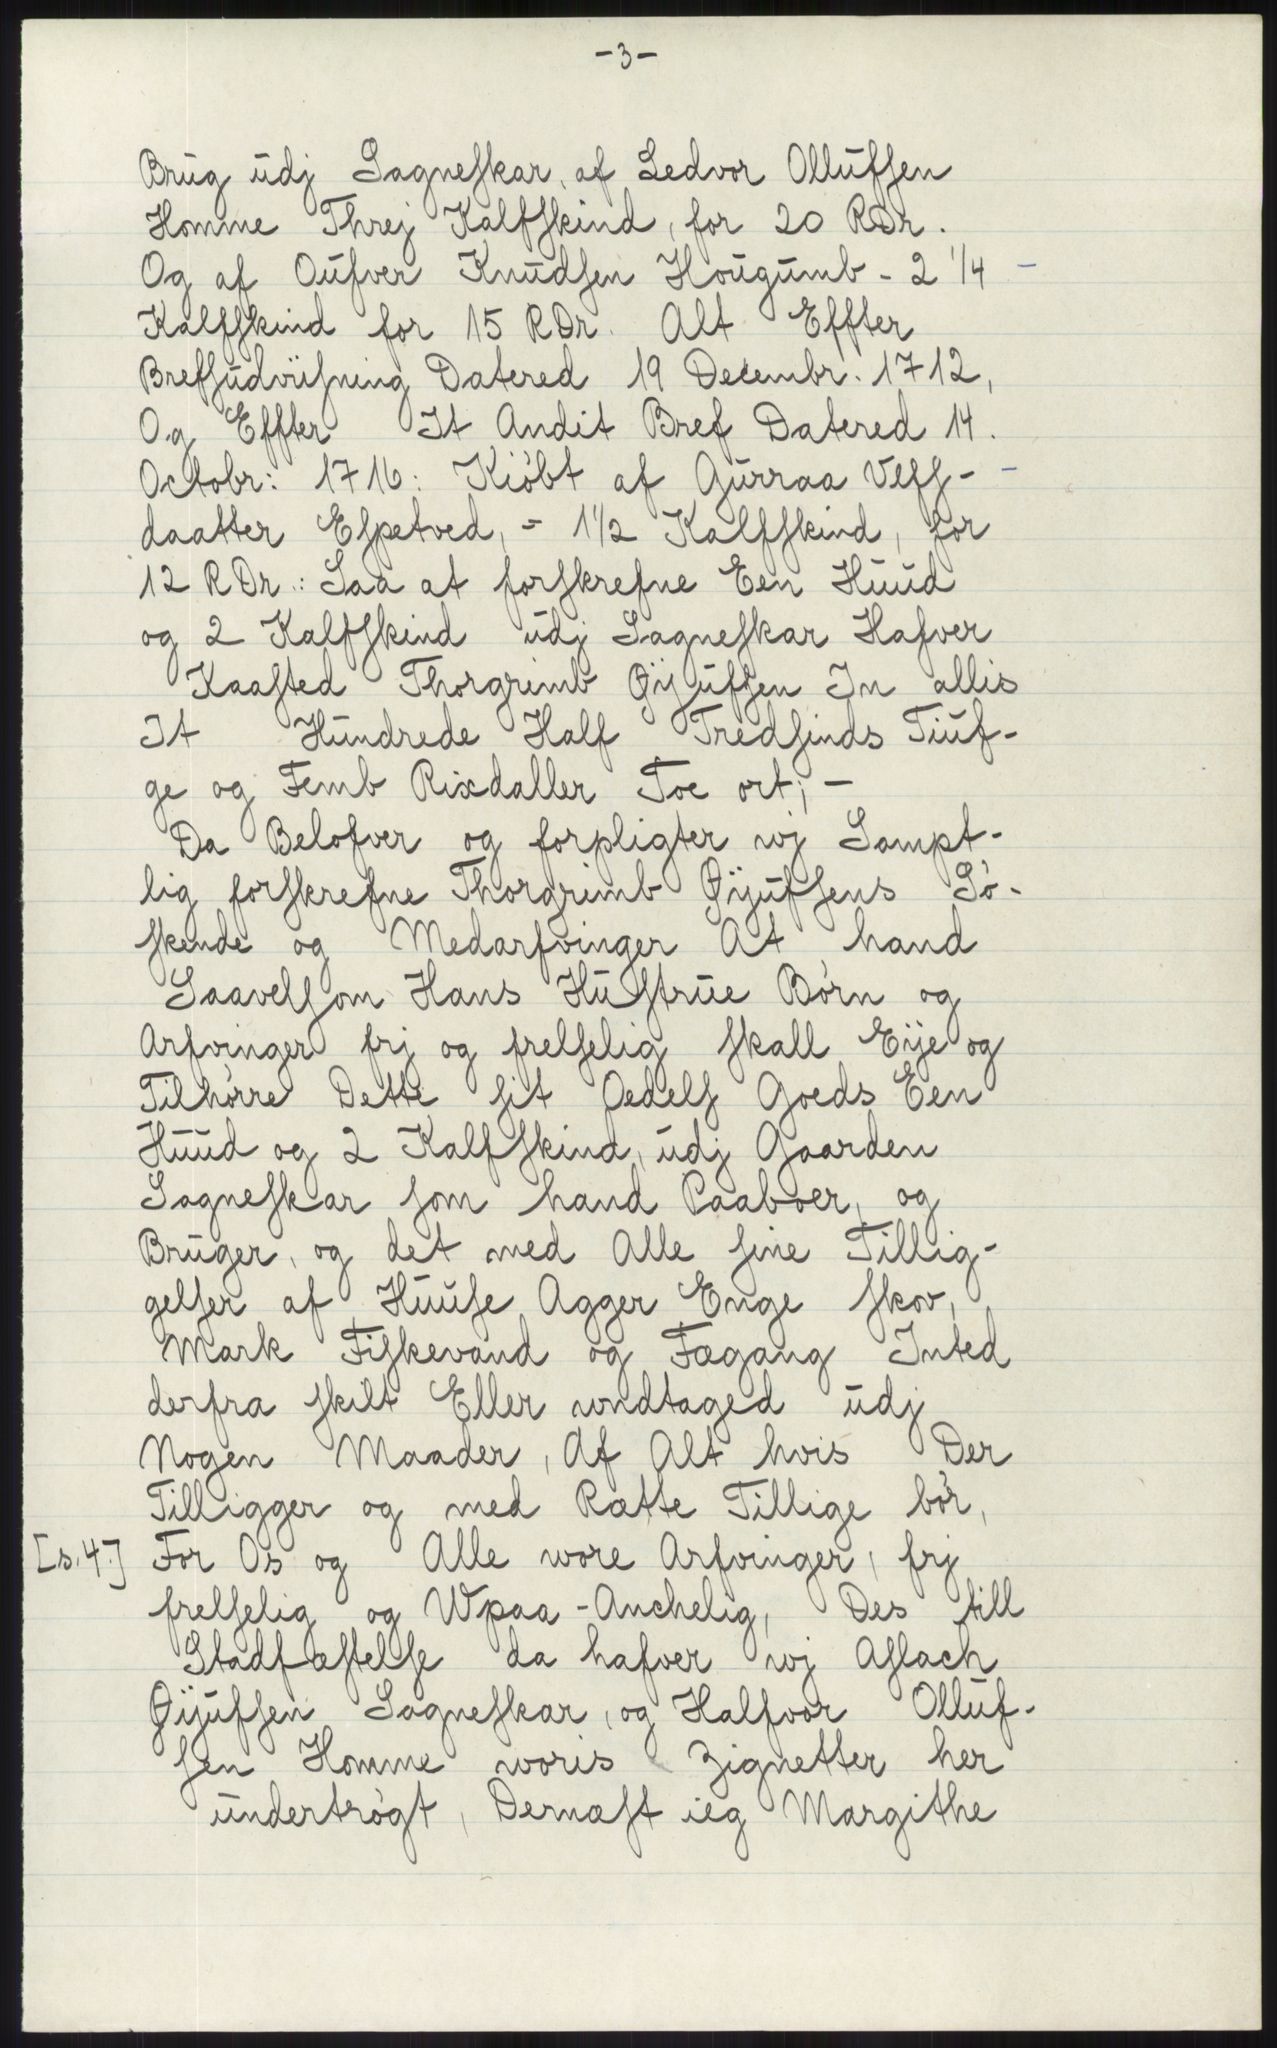 -3-
Brug udj Sagneskar, af Ledvor Ollufsen
Homme Threj Kalfskind, for 20 RDr.
Og af Oufver Knudsen Hougumb - 2 1/4 -
Kalfskind for 15 RDr. Alt Effter
Brefsudviisning Datered 19 Decembr. 1712,
Og Effter It Andit Bref Datered 14.
Octobr: 1716: Kiøbt af Gurraa Ulfs- -
daatter Espetved, = 1 1/2 Kalfskind, for
12 RDr.: Saa at forskrefne Een Huud
og 2 Kalfskind udj Sagneskar Hafver
Kaasted Thorgrimb Øÿufsen In allis
It Hundrede Half Tredsinds Tiuf-
ge og Femb Rixdaller Toe ort; -
Da Belofver og forpligter wj Sampt-
lig forskrefne Thorgrimb Øÿufsens Sø-
skende og Medarfvinger At hand
Saavelsom Hans Hustrue Børn og
Arfvinger frj og frelselig skall Eÿe og
Tilhørre Dette sit Oedels Goeds Een
Huud og 2 Kalfskind, udj Gaarden
Sagneskar som hand Paaboer, og
Bruger, og det med Alle sine Tillig-
gelser af Huuse Agger Enge skov,
Mark Fiskevand og Fægang Inted
derfra skilt Eller undtaged udj
Nogen Maader, Af Alt hvis Der
Tilligger og med Rætte Tillige bør,
[s. 4.] For Os og Alle wore Arfvinger, frj
frelselig og Wpaa-Anchelig, Des till
Stadfæstelse da hafver wj Aslach
Øÿufsen Sagneskar, og Halfvor Olluf-
sen Homme woris Zignetter her
undertrøgt, Dernæst ieg Margithe